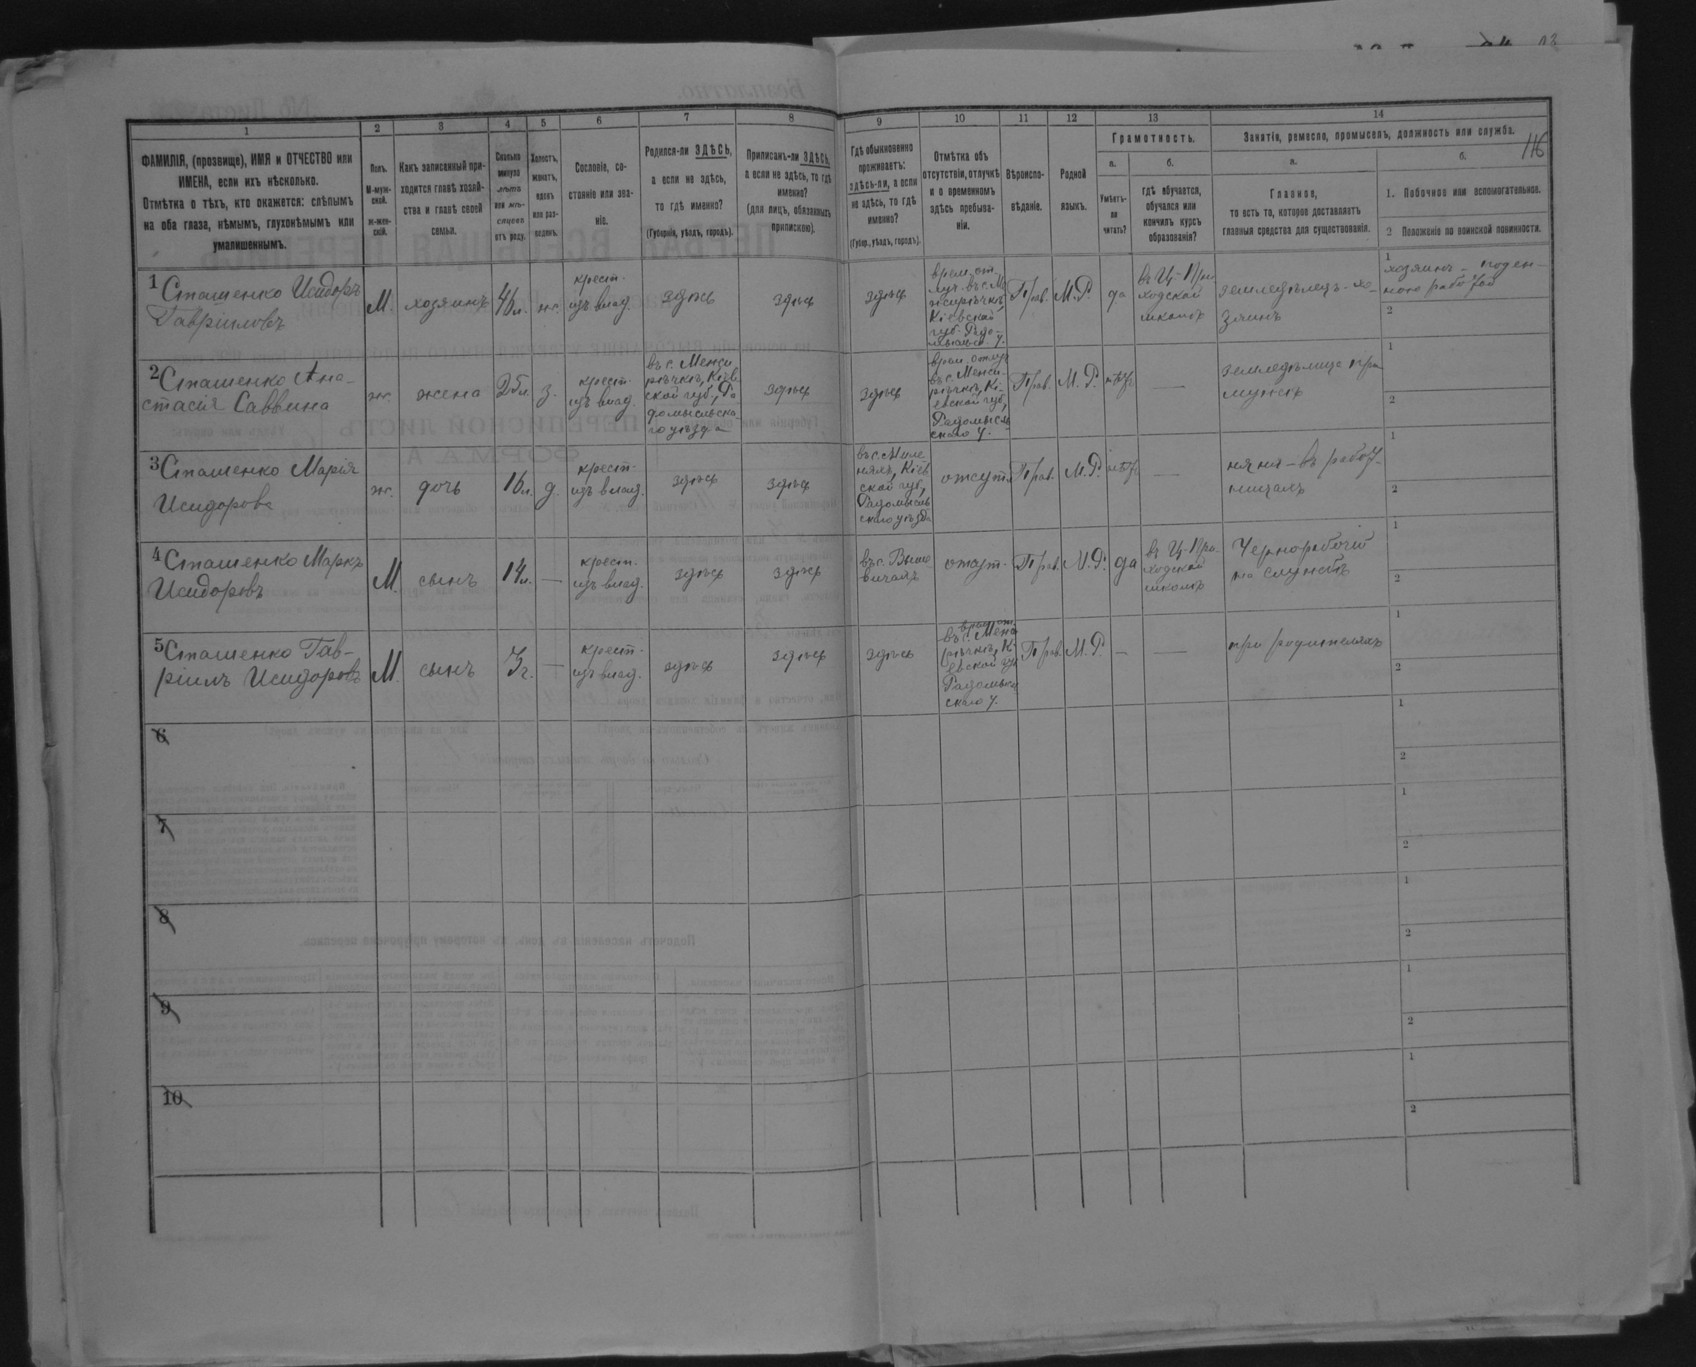 1 2 3 4 5 6 7 8 9 10 11 12 13 14
116
ФАМИЛІЯ, (прозвище), ИМЯ и ОТЧЕСТВО или
ИМЕНА, если ихъ нѣсколько.
Отмѣтка о тѣхъ, кто окажется: слѣпымъ
на оба глаза, нѣмымъ, глухонѣмымъ или
умалишеннымъ.
Полъ.
М-муж-
ской.
ж-жен-
скій.
Какъ записанный при-
ходится главѣ хозяй-
ства и главѣ своей
семьи.
Сколько
минуло
лѣтъ
или мѣ-
сяцевъ
отъ роду.
Холостъ,
женатъ,
вдовъ
или раз-
веденъ.
Сословіе, со-
стояніе или зва-
ніе.
Родился-ли ЗДѢСЬ,
а если не здѣсь,
то гдѣ именно?
(Губернія, уѣздъ, городъ).
Приписанъ-ли ЗДѢСЬ,
а если не здѣсь, то гдѣ
именно?
(для лицъ, обязанныхъ
припискою).
Гдѣ обыкновенно
проживаетъ:
здѣсь-ли, а если
не здѣсь, то гдѣ
именно?
(Губер., уѣздъ, городъ).
Отмѣтка объ
отсутствіи, отлучкѣ
и о временномъ
здѣсь пребыва-
ніи.
Вѣроиспо-
вѣданіе.
Родной
языкъ.
Грамотность.
а.
Умѣетъ-
ли
читать?
б.
гдѣ обучается,
обучался или
кончилъ курсъ
образованія?
Занятіе, ремесло, промыселъ, должность или служба.
а.
Главное,
то есть то, которое доставляетъ
главныя средства для существованія.
б.
1. Побочное или вспомогательное.
2 Положеніе по воинской повинности.
1 Сташенко Исидоръ
Гавріиловъ
М.
хозяинъ
46 л.
ж.
крест.
изъ влад.
здѣсь
здѣсь
здѣсь
врем. от-
луч. въ с. М
Кіевской
губ. Радо-
мысльск. у.
Прав.
М. Р.
да
въ Ц-При
ходской
школѣ
земледѣлецъ-хо-
зяинъ
1
хозяинъ - поден-
ною работой
2
2 Сташенко Ана-
стасія Саввина
ж.
жена
з.
крест.
изъ влад.
въ с. Межи
рѣчкѣ, Кіев
ской губ., Ра
домысльска
го уѣзда
здѣсь
здѣсь
врем. отлуч
въ с. Межи-
рѣчкѣ, Кі-
евской губ,
Радомысль
скаго у.
Прав.
М. Р.
нѣтъ
—
земледѣлица при
мужѣ
1
2
3 Сташенко Марія
Исидорова
ж.
дочь
16 л.
д.
крест-
изъ влад.
здѣсь
здѣсь
Кіев
ской губ,
Радомысль
скаго уѣзда
отсут.
Прав.
М. Р.
нѣтъ
—
няня - въ
1
2
4 Сташенко Маркъ
Исидоровъ
М.
сынъ
14 л.
—
крест.
изъ влад.
здѣсь
здѣсь
въ с. Выше
вичахъ
отсут.
Прав.
М. Р.
да
въ Ц-При-
ходской
школѣ
Чернорабочій
на службѣ
1
2
5 Сташенко Гав-
ріилъ Исидоровъ
М.
сынъ
3 г.
—
крест-
изъ влад.
здѣсь
здѣсь
здѣсь
врем. от.
въ с. Межи
рѣчкѣ, Кі
евской губ
Радомысль
скаго у.
Прав.
М. Р.
—
—
при родителяхъ
1
2
6
1
2
7
1
2
8
1
2
9
1
2
10
1
2